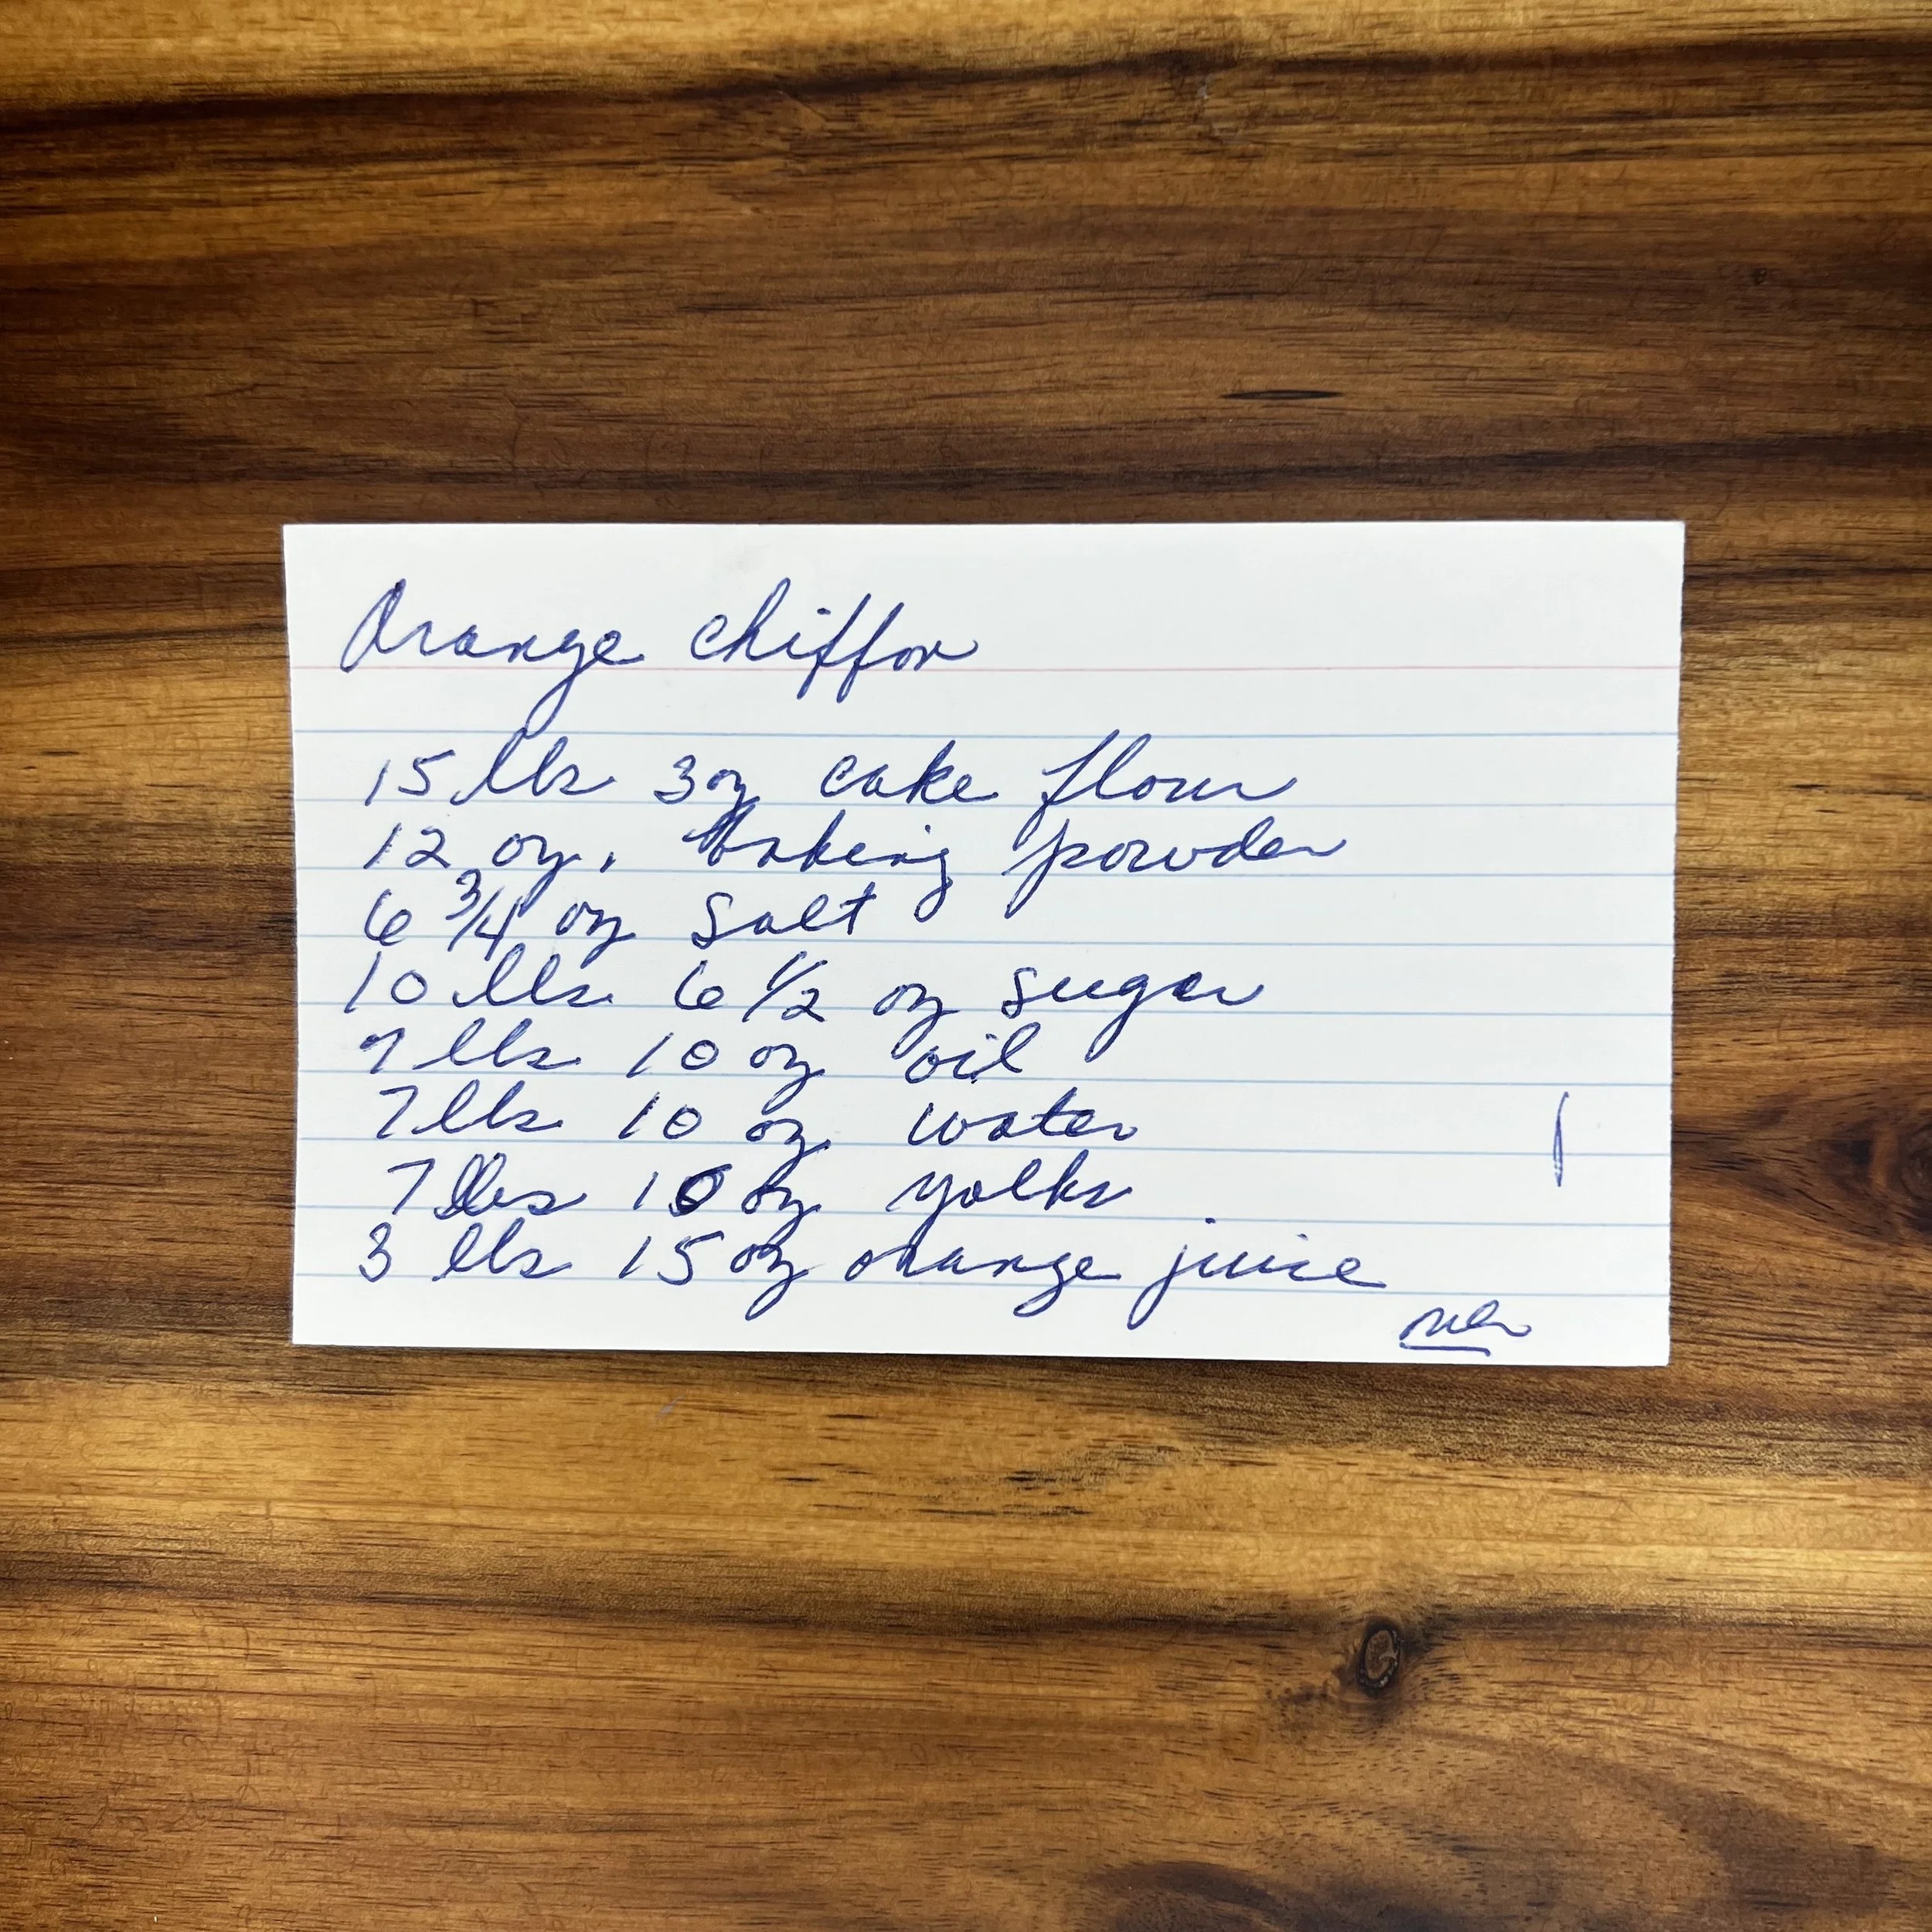 Orange chiffon
15 lbs 3 oz cake flour
12 oz. baking powder
6 3/4 oz salt
10 lbs 6 1/2 oz sugar
7 lbs 10 oz oil
7 lbs 10 oz water
7 lbs 10 oz yolks
3 lbs 15 oz orange juice